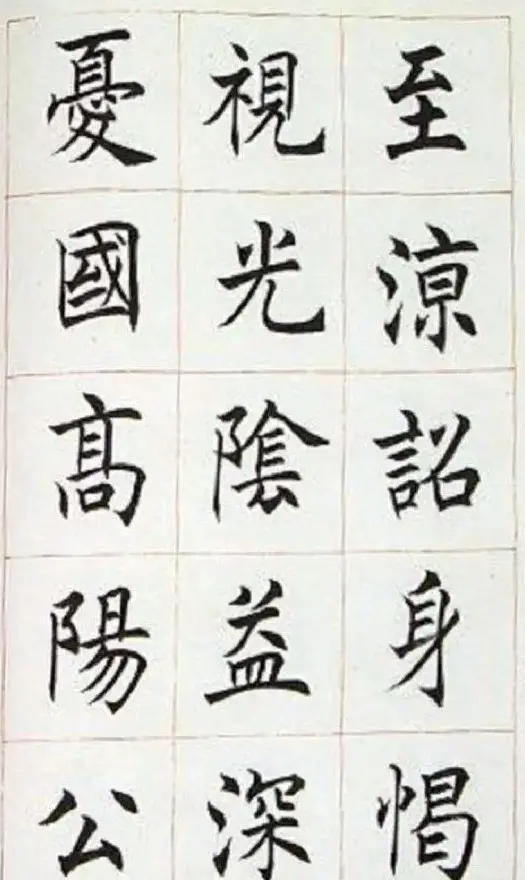 至涼詔身愒
視光陰益深
憂國高陽公